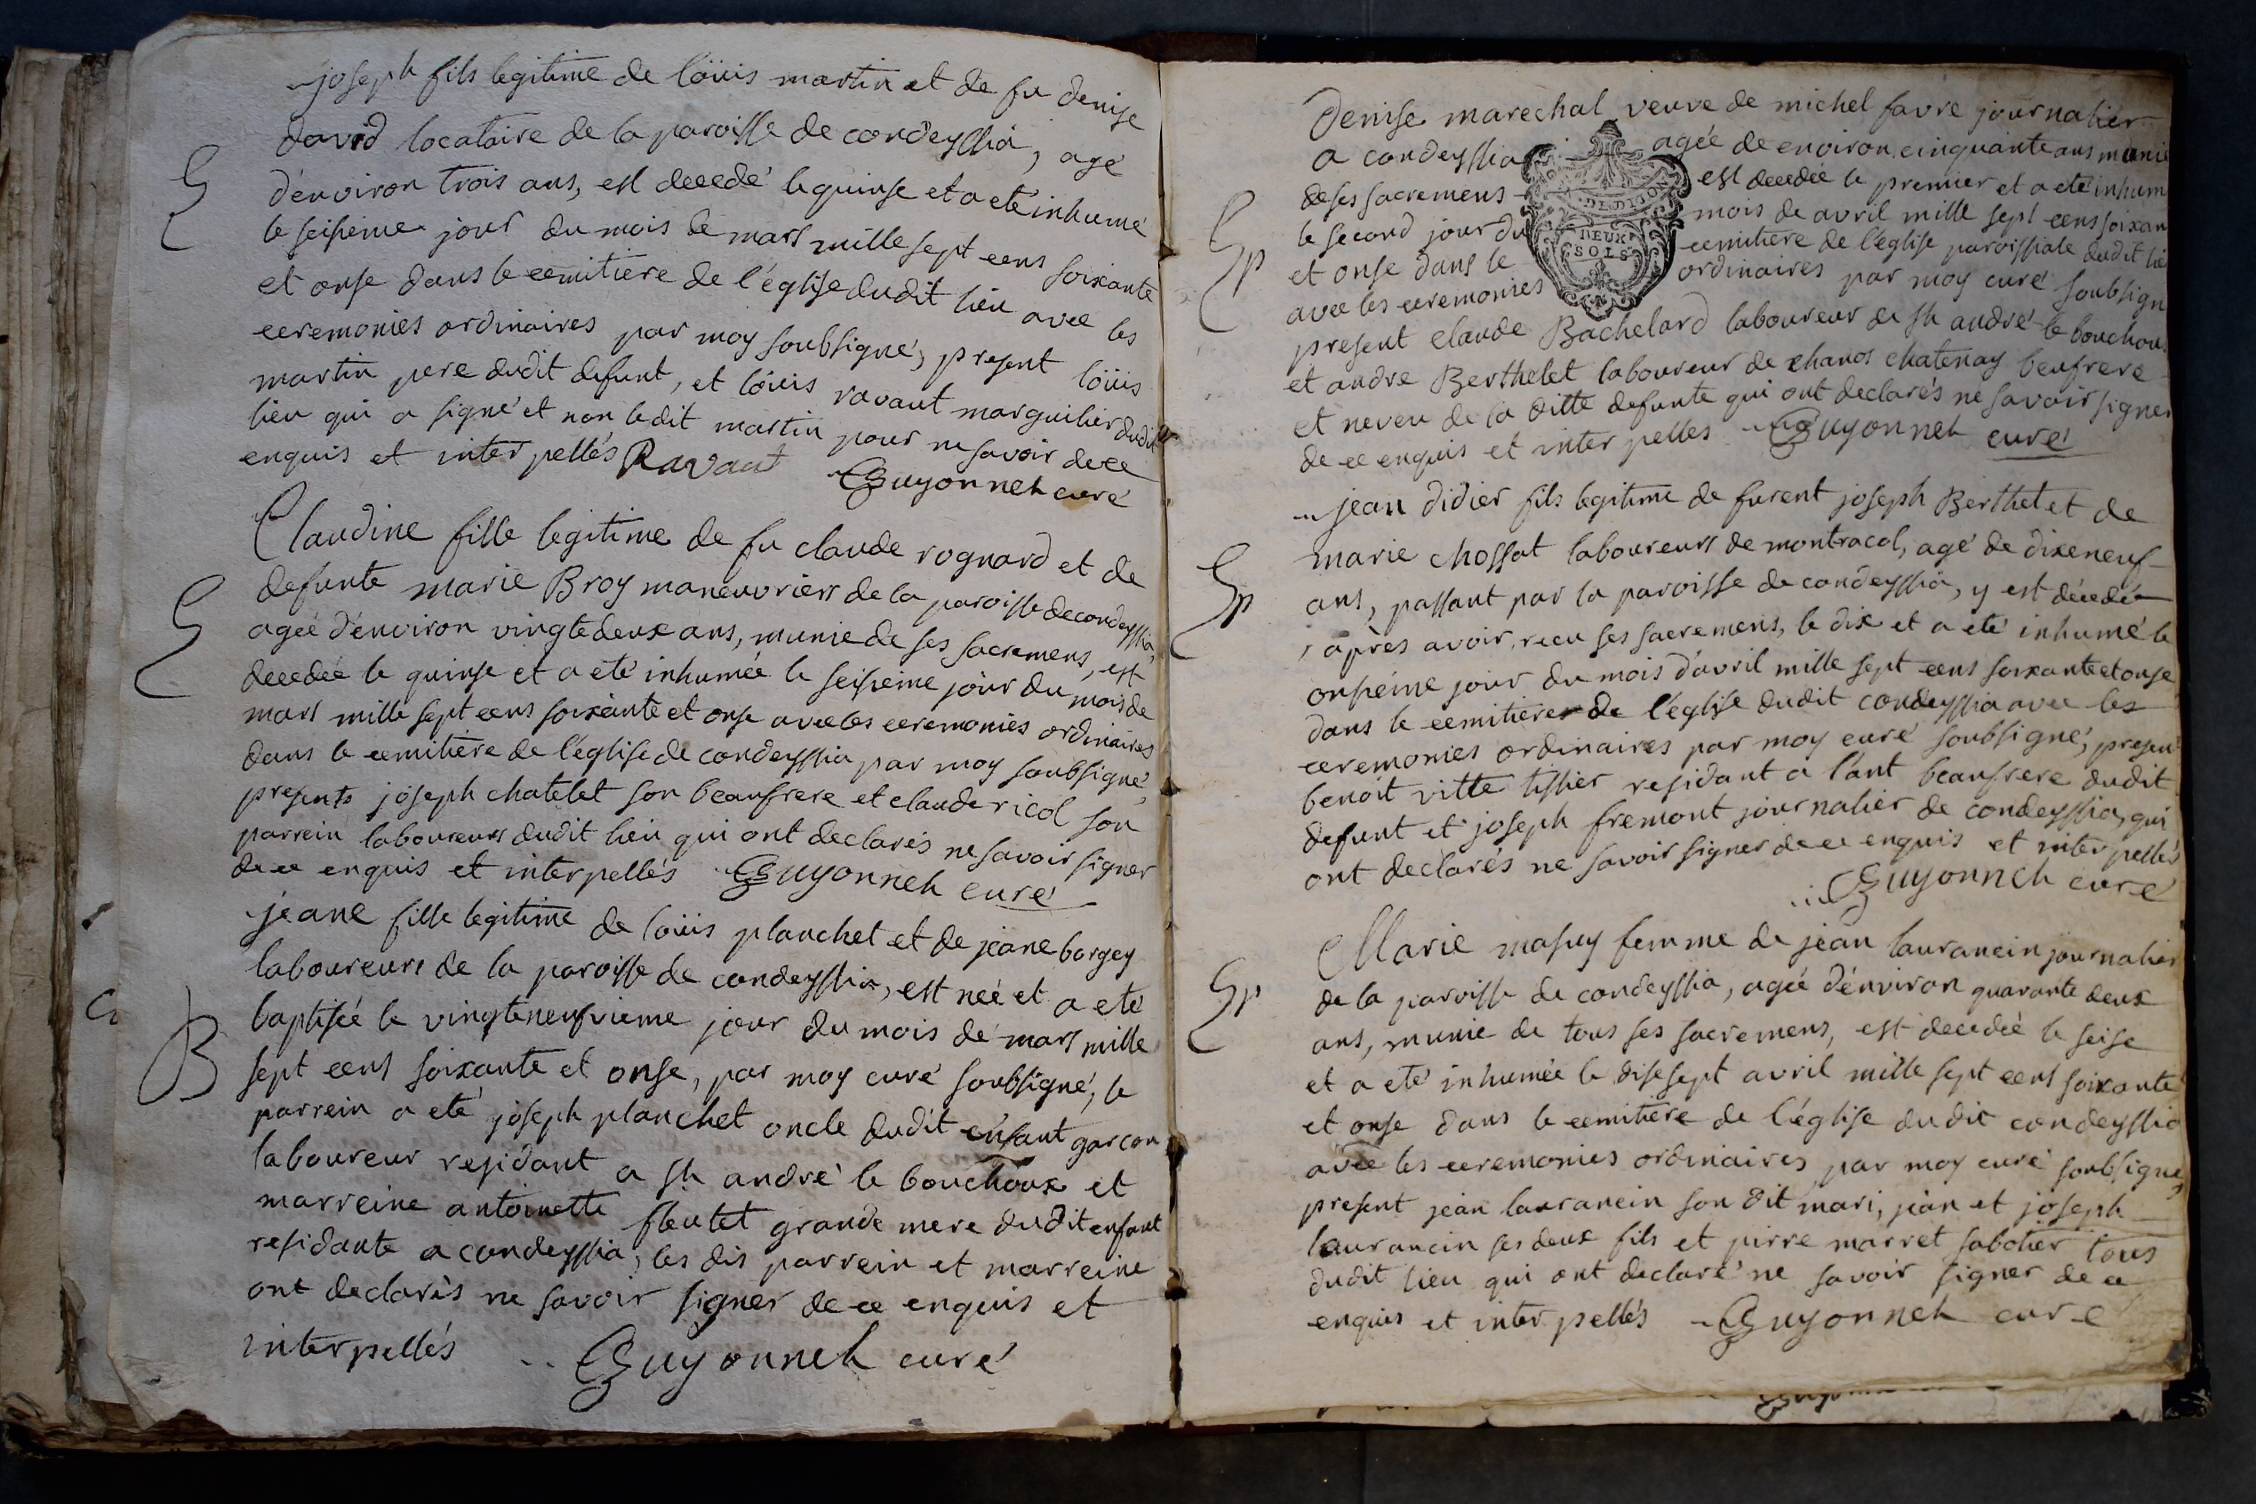 joseph fils legitime de loüis martin et de fu denise
david locataire de la paroisse de condeyssia, agé
d'environ trois ans, est decedé le quinse et a eté inhumé
le seisieme jour du mois de mars mille sept cens soixante
et onse dans le cemitiere de l'église dudit lieu avec les
ceremonies ordinaires par moy soubsigné, present loüis
martin pere dudit defunt, et loüis ravaut marguilier dudit
lieu qui a signé et non ledit martin pour ne savoir de ce
enquis et interpellés Ravaut Guyonnet curé
S
Claudine fille legitime de fu claude rognard et de
defunte marie Broy maneuvriers de la paroisse de condeyssia,
ageé d'environ vingtedeux ans, munie de ses sacremens, est
decedeé le quinse et a eté inhumeé le seisieme jour du mois de
mars mille sept cens soixante et onse avec les ceremonies ordinaires
dans le cemitiere de l'église de condeyssia par moy soubsigné,
presents joseph chatelet son beaufrere et claude ricol son
parrein laboureurs dudit lieu qui ont declarés ne savoir signer
de ce enquis et interpellés Guyonnet curé
S
jeane fille legitime de loüis planchet et de jeane borgey
laboureurs de la paroisse de condeyssia, est neé et a eté
baptiseé le vingteneufvieme jour du mois de mars mille
sept cens soixante et onse, par moy curé soubsigné, le
parrein a eté joseph planchet oncle dudit enfant garcon
laboureur residant a st andré le bouchoux et
marreine antoinette fleutet grande mere dudit enfant
residante a condeyssia, les dis parrein et marreine
ont declarés ne savoir signer de ce enquis et
interpellés Guyonnet curé
B
Denise marechal veuve de michel favre journalier
a condeyssia ageé de environ cinquante ans munie
de ses sacremens est decedeé le premier et a eté inhum
le second jour du mois de avril mille sept cens soixan
et onse dans le cemitiere de l'église paroissiale dudit lie
avec les ceremonies ordinaires par moy curé soubsign
present claude Bachelard laboureur de st andré le bouchou
et andre Berthelet laboureur de chanos chatenay beufrere
et neveu de la ditte defunte qui ont declarés ne savoir signer
de ce enquis et interpelles Guyonnet curé
Sp
DE DIJON
DEUX
SOLS
jean didier fils legitime de furent joseph Berthet et de
marie chossat laboureurs de montracol, agé de dixeneuf
ans, passant par la paroisse de condeyssia, y est décedé
après avoir recu ses sacremens, le dix et a eté inhumé le
onsieme jour du mois d'avril mille sept cens soixante et onse
dans le cemitiere de l'église dudit condeyssia avec les
ceremonies ordinaires par moy curé soubsigné, present
benoit vitte tissier residant a l'ant beaufrere dudit
defunt et joseph fremont journalier de condeyssia, qui
ont declarés ne savoir signer de ce enquis et interpellés
Guyonnet curé
Sp
Marie masuy femme de jean laurancin journalier
de la paroisse de condeyssia, ageé d'environ quarante deux
ans, munie de tous ses sacremens, est decedeé le seise
et a eté inhumeé le disesept avril mille sept cens soixante
et onse dans le cemitiere de l'église dudit condeyssia
avec les ceremonies ordinaires par moy curé soubsigné,
present jean laurancin son dit mari, jean et joseph
laurancin ses deux fils et pirre marret sabotier tous
dudit lieu qui ont declaré ne savoir signer de ce
enquis et interpellés Guyonnet curé
Sp